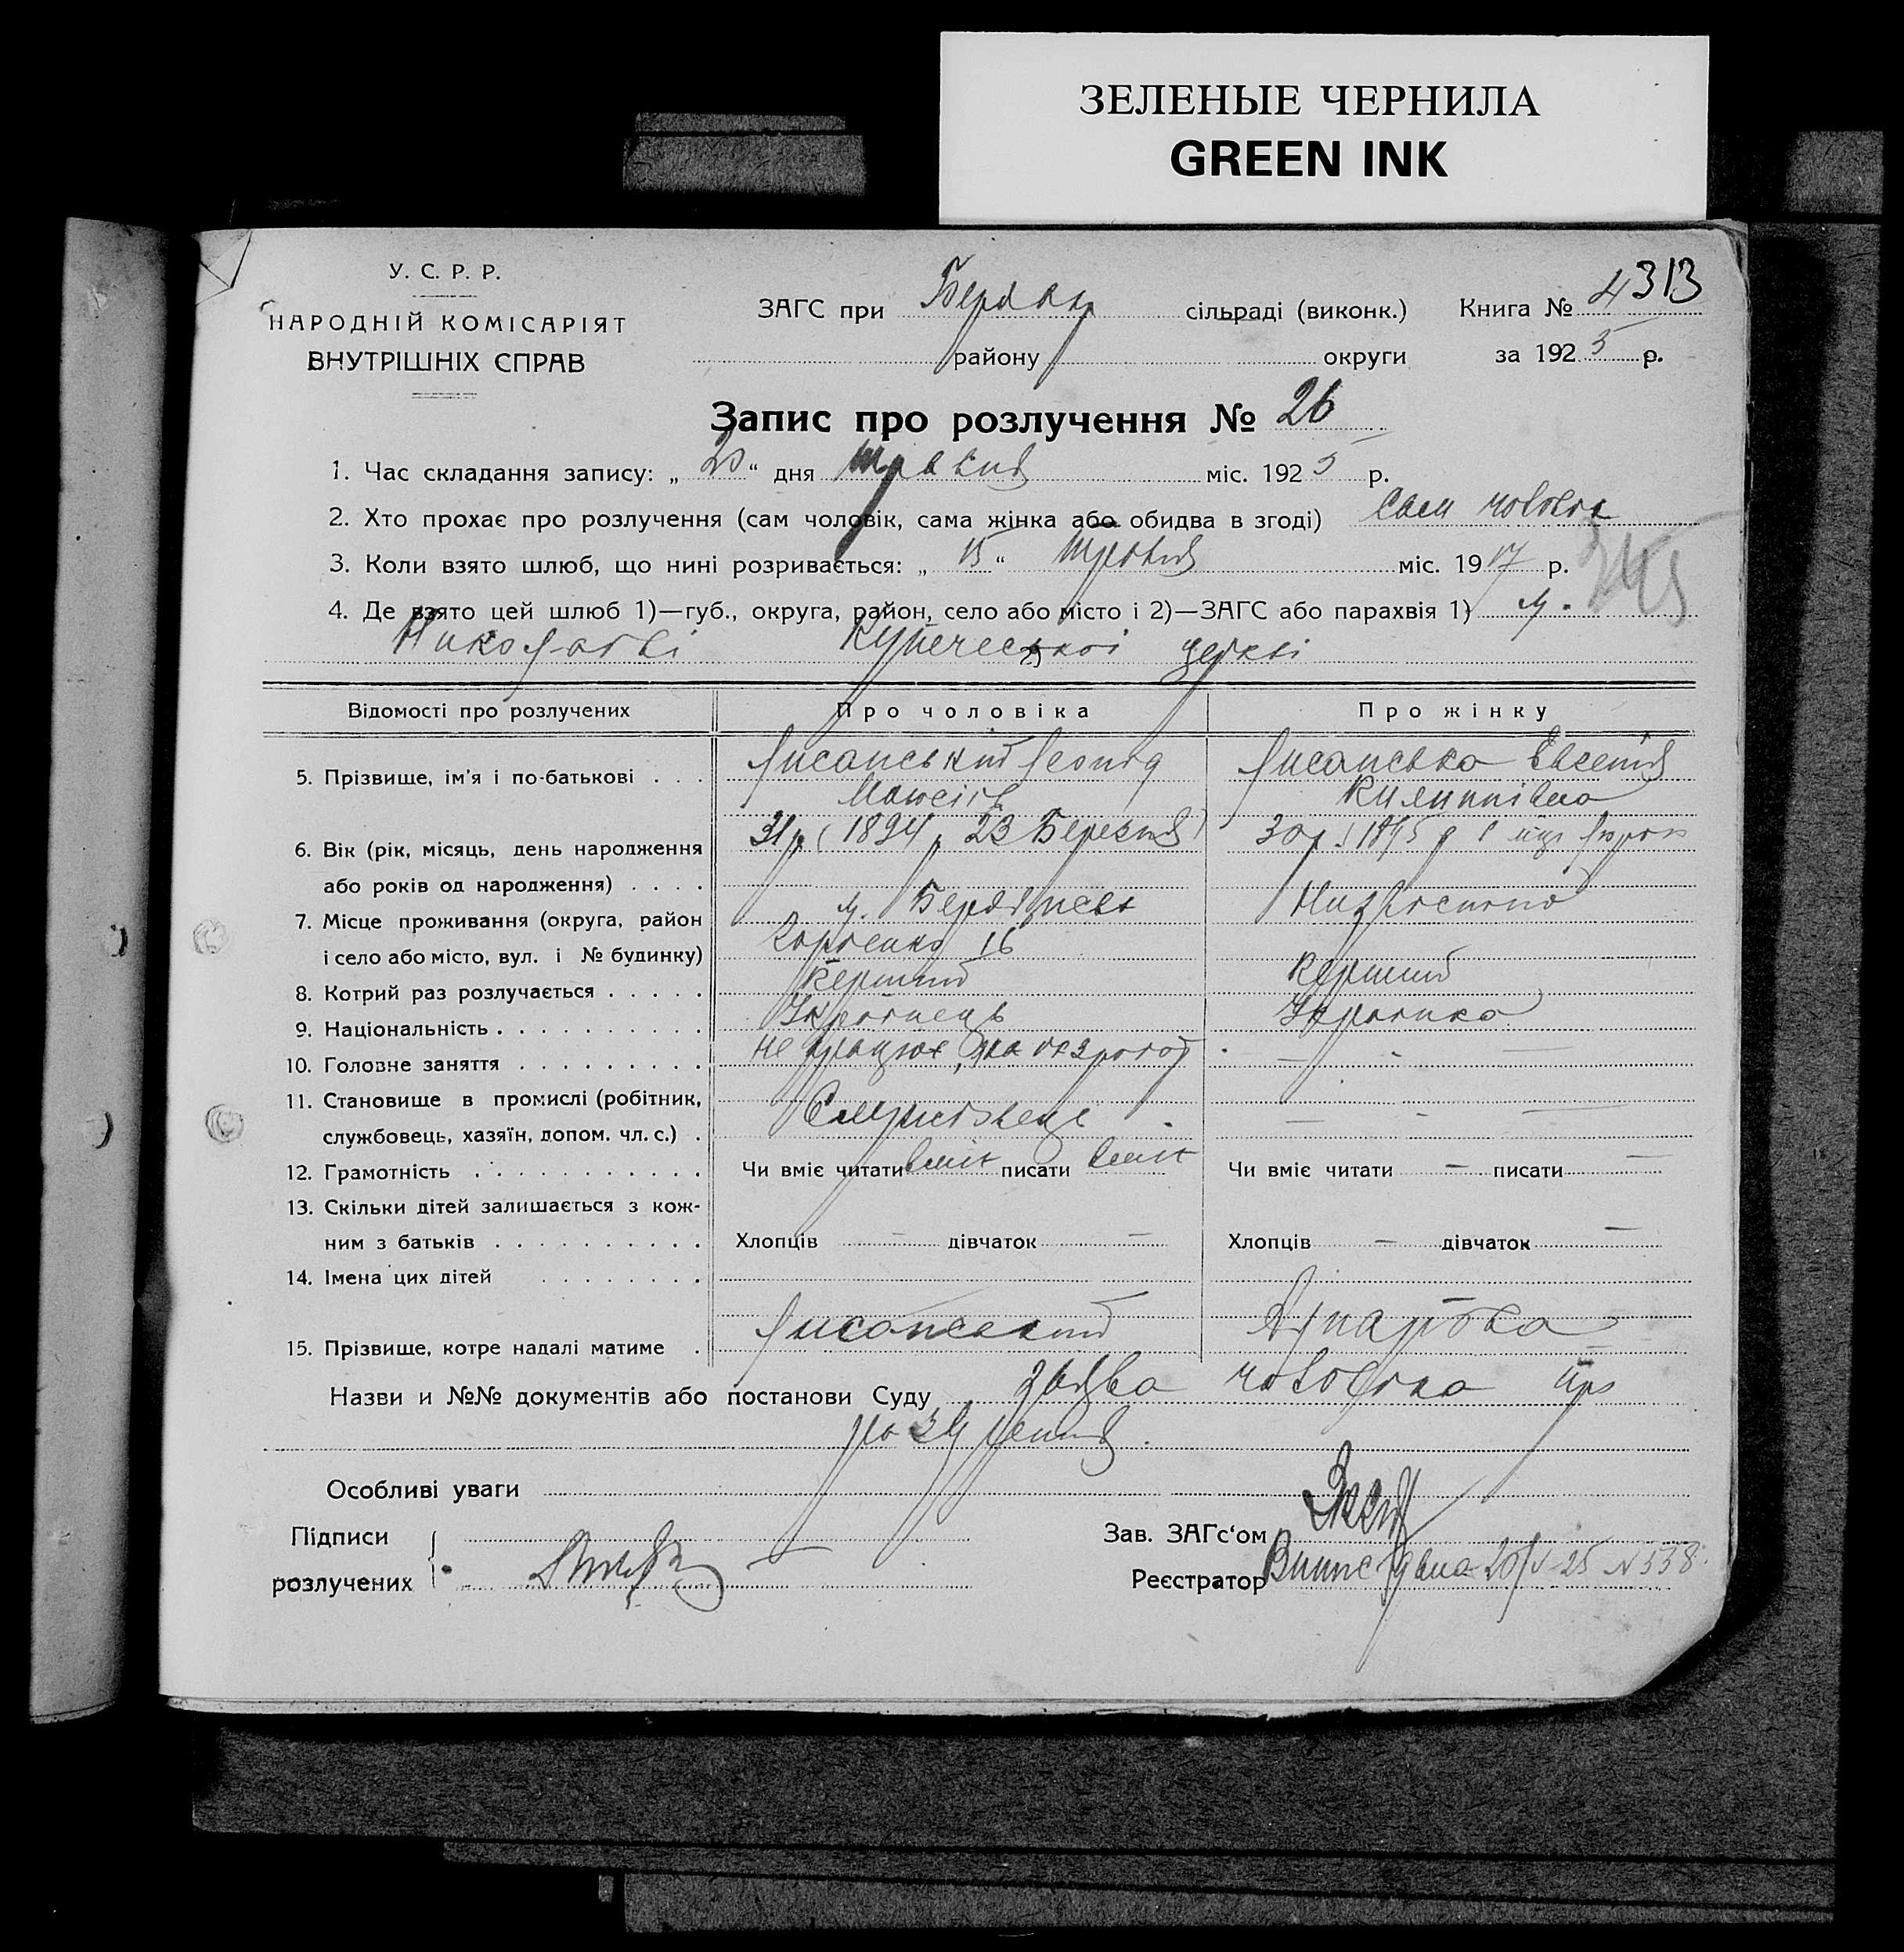 ЗЕЛЕНЫЕ ЧЕРНИЛА
GREEN INK
У. С. Р. Р.
НАРОДНІЙ КОМІСАРІЯТ
ВНУТРІШНІХ СПРАВ
ЗАГС при сільраді (виконк.) Книга № 4 313
району округи за 192 5 р.
Запис про розлучення № 26
1. Час складання запису: „ 20 “ дня травня міс. 192 5 р.
2. Хто прохає про розлучення (сам чоловік, сама жінка або обидва в згоді) сам чоловік
3. Коли взято шлюб, що нині розривається: „ 15 “ травня міс. 19 17 р.
4. Де взято цей шлюб 1)—губ., округа, район, село або місто і 2)—ЗАГС або парахвія 1) м.
Николаєві 2) Купеческої церкві
Відомості про розлучених Про чоловіка Про жінку
5. Прізвище, ім’я і по-батькові . . . Лисанський Леонід Лисанська Евгенія
31 р. (1894 р. 23 Березня) 30 р. (1895 р.
6. Вік (рік, місяць, день народження
або років од народження) . . . .
7. Місце проживання (округа, район м.
і село або місто, вул. і № будинку) 16
8. Котрий раз розлучається . . . . . Перший Перший
9. Національність . . . . . . . . . . Українець Українка
10. Головне заняття . . . . . . . . . не працює, — - —
11. Становище в промислі (робітник,
службовець, хазяїн, допом. чл. с.) . Службовець . — - —
12. Грамотність . . . . . . . . . . Чи вміє читати вміє писати вміє Чи вміє читати — писати —
13. Скільки дітей залишається з кож-
ним з батьків . . . . . . . . . . Хлопців — дівчаток — Хлопців — дівчаток —
14. Імена цих дітей . . . . . . . .
15. Прізвище, котре надалі матиме . Лисанський
Назви и №№ документів або постанови Суду заява чоловіка про
розлучення.
Особливі уваги
Підписи
розлучених
Зав. ЗАГс‘ом
Реєстратор 20/V-25 N 538